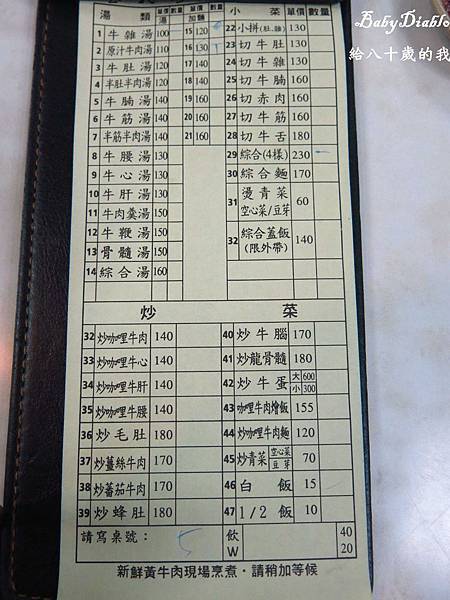 BabyDiablo
給八十歲的我
湯類 單價 數量 單價 數量 小菜 單價 數量
湯 加麵
1 牛雜湯 100 15 120 22 小拼(肚.雜) 130
2 原汁牛肉湯 110 16 130 23 切牛肚 130
3 牛肚湯 120 17 140 24 切牛雜 130
4 半肚半肉湯 120 18 140 25 切牛腩 160
5 牛腩湯 140 19 160 26 切赤肉 160
6 牛筋湯 140 20 160 27 切牛筋 160
7 半筋半肉湯 140 21 160 28 切牛舌 180
8 牛腰湯 130 29 綜合(4樣) 230
9 牛心湯 130 30 綜合麵 170
10 牛肝湯 130 31 燙青菜 空心菜/豆芽 60
11 牛肉羹湯 150
12 牛鞭湯 150 32 綜合蓋飯 (限外帶) 140
13 骨髓湯 150
14 綜合湯 160
炒菜
32 炒咖哩牛肉 140 40 炒牛腦 170
33 炒咖哩牛心 140 41 炒龍骨髓 180
34 炒咖哩牛肝 140 42 炒牛蛋 大600 小300
35 炒咖哩牛腰 140 43 咖哩牛肉燴飯 155
36 炒毛肚 180 44 炒咖哩牛肉麵 120
37 炒薑絲牛肉 170 45 炒青菜 空心菜 豆芽 70
38 炒蕃茄牛肉 170 46 白飯 15
39 炒蜂肚 180 47 1/2飯 10
請寫桌號： 5 飲 40
W 20
新鮮黃牛肉現場烹煮，請稍加等候